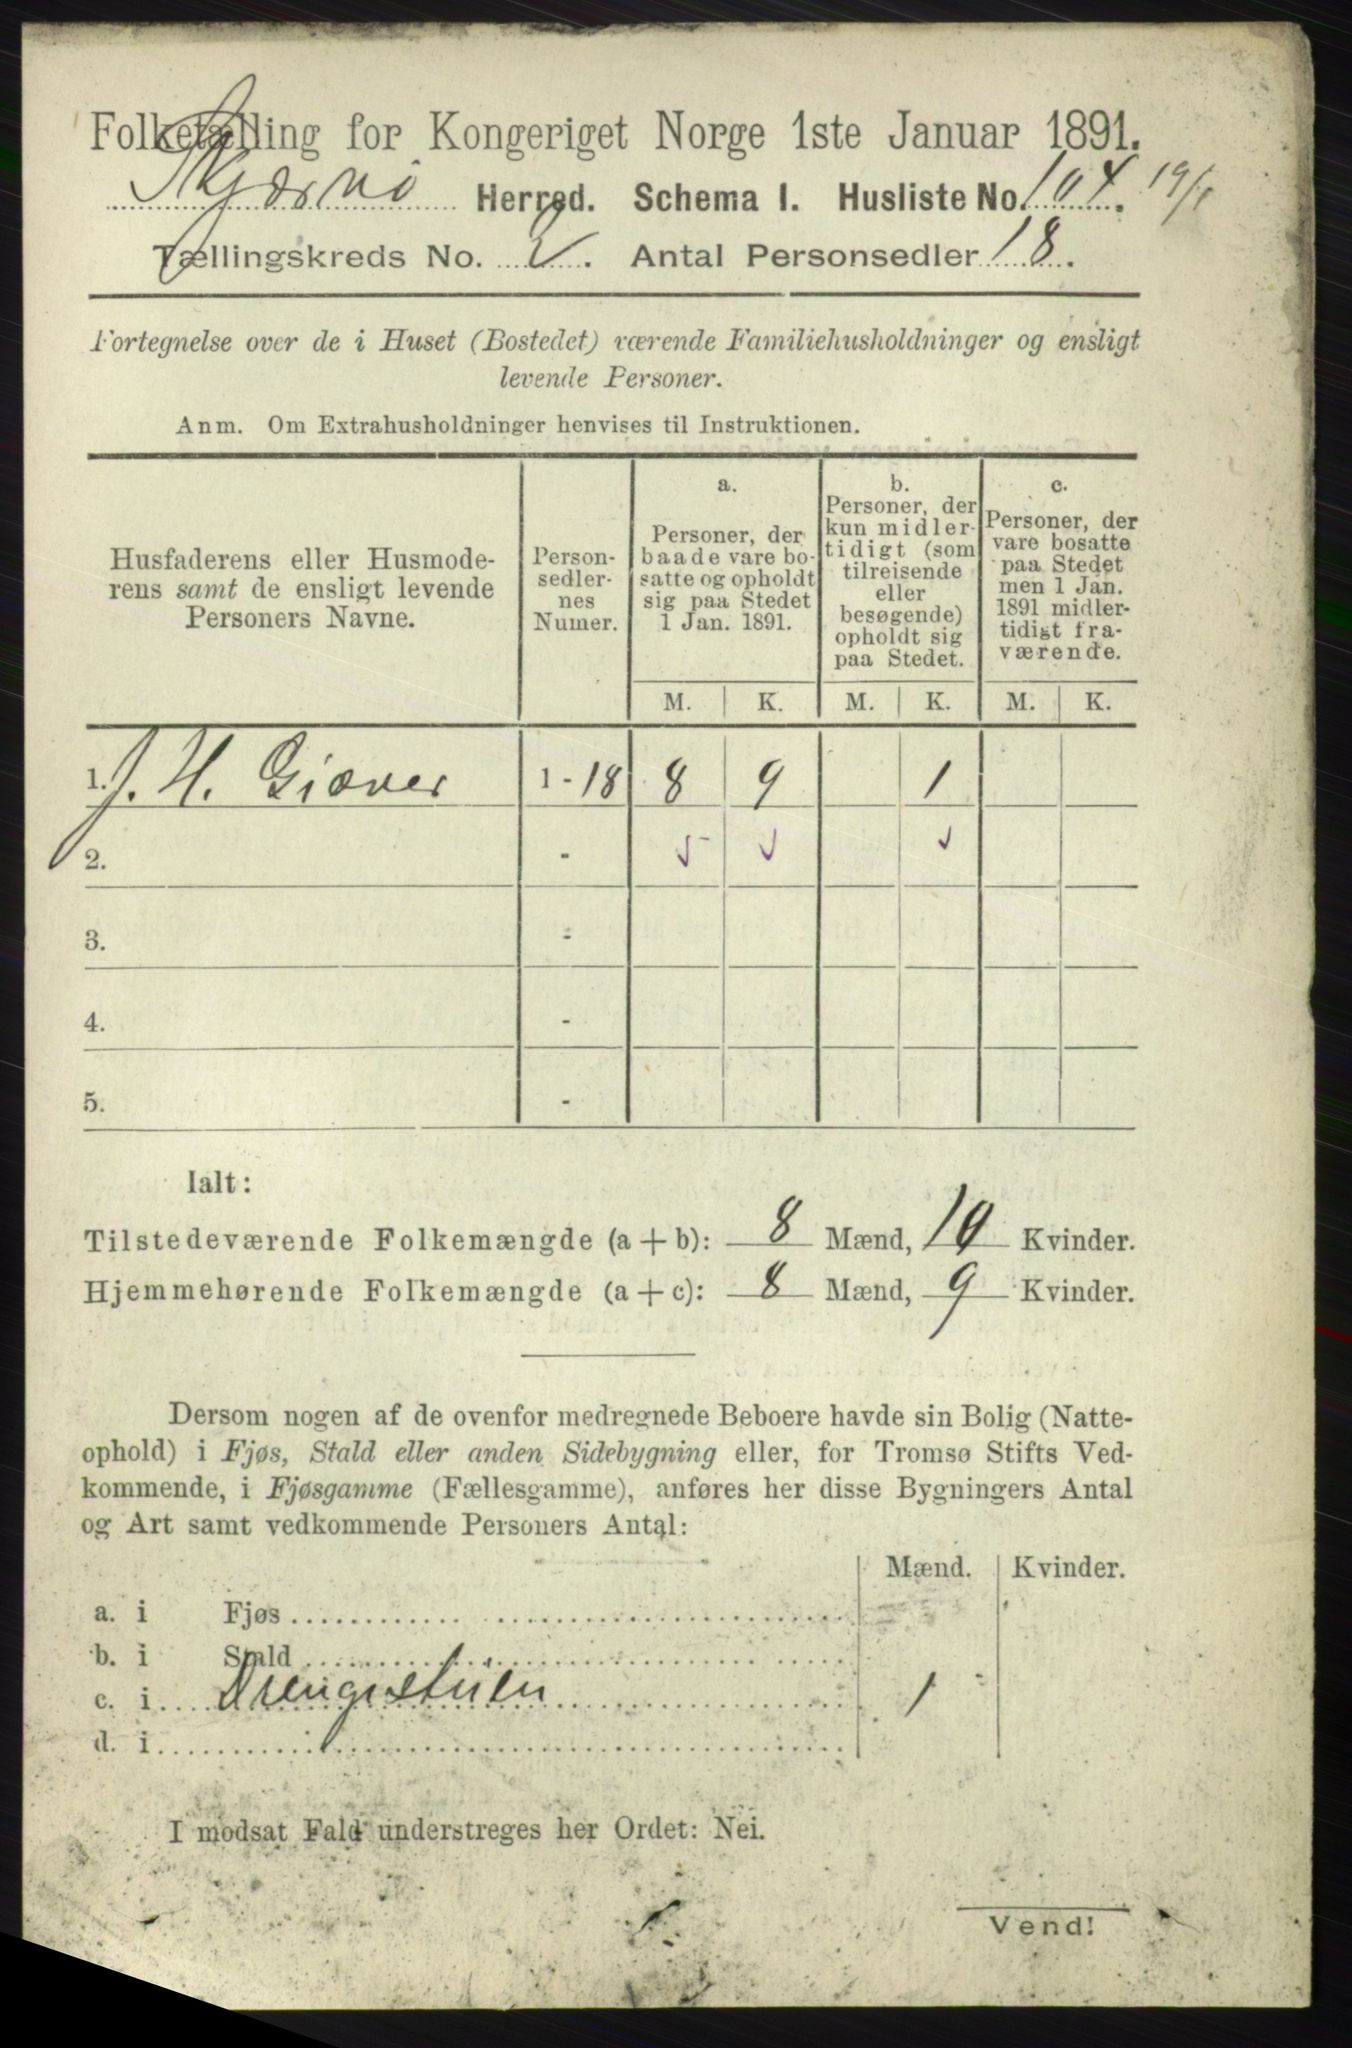 Folketælling for Kongeriget Norge 1ste Januar 1891.
Skjervø Herred. Schema I. Husliste No. 104. 19/1
Tællingskreds No. 2. Antal Personsedler 18.
Fortegnelse over de i Huset (Bostedet) værende Familiehusholdninger og ensligt
levende Personer.
Anm. Om Extrahusholdninger henvises til Instruktionen.
Husfaderens eller Husmode-
rens samt de ensligt levende
Personers Navne.
Person-
sedler-
nes
Numer.
a.
Personer, der
baade vare bo-
satte og opholdt
sig paa Stedet
1 Jan. 1891.
b.
Personer, der
kun midler-
tidigt (som
tilreisende
eller
besøgende)
opholdt sig
paa Stedet.
c.
Personer, der
vare bosatte
paa Stedet
men 1 Jan.
1891 midler-
tidigt fra-
værende.
M. K. M. K. M. K.
1. J. H. Giæver 1 - 18 8 9 1
2. -
3. -
4. -
5. -
Ialt:
Tilstedeværende Folkemængde (a + b): 8 Mænd, 10 Kvinder.
Hjemmehørende Folkemængde (a + c): 8 Mænd, 9 Kvinder.
Dersom nogen af de ovenfor medregnede Beboere havde sin Bolig (Natte-
ophold) i Fjøs, Stald eller anden Sidebygning eller, for Tromsø Stifts Ved-
kommende, i Fjøsgamme (Fællesgamme), anføres her disse Bygningers Antal
og Art samt vedkommende Personers Antal:
Mænd. Kvinder.
a. i Fjøs
b. i Stald
c. i Drengestuen 1
d. i
I modsat Fald understreges her Ordet: Nei.
Vend!